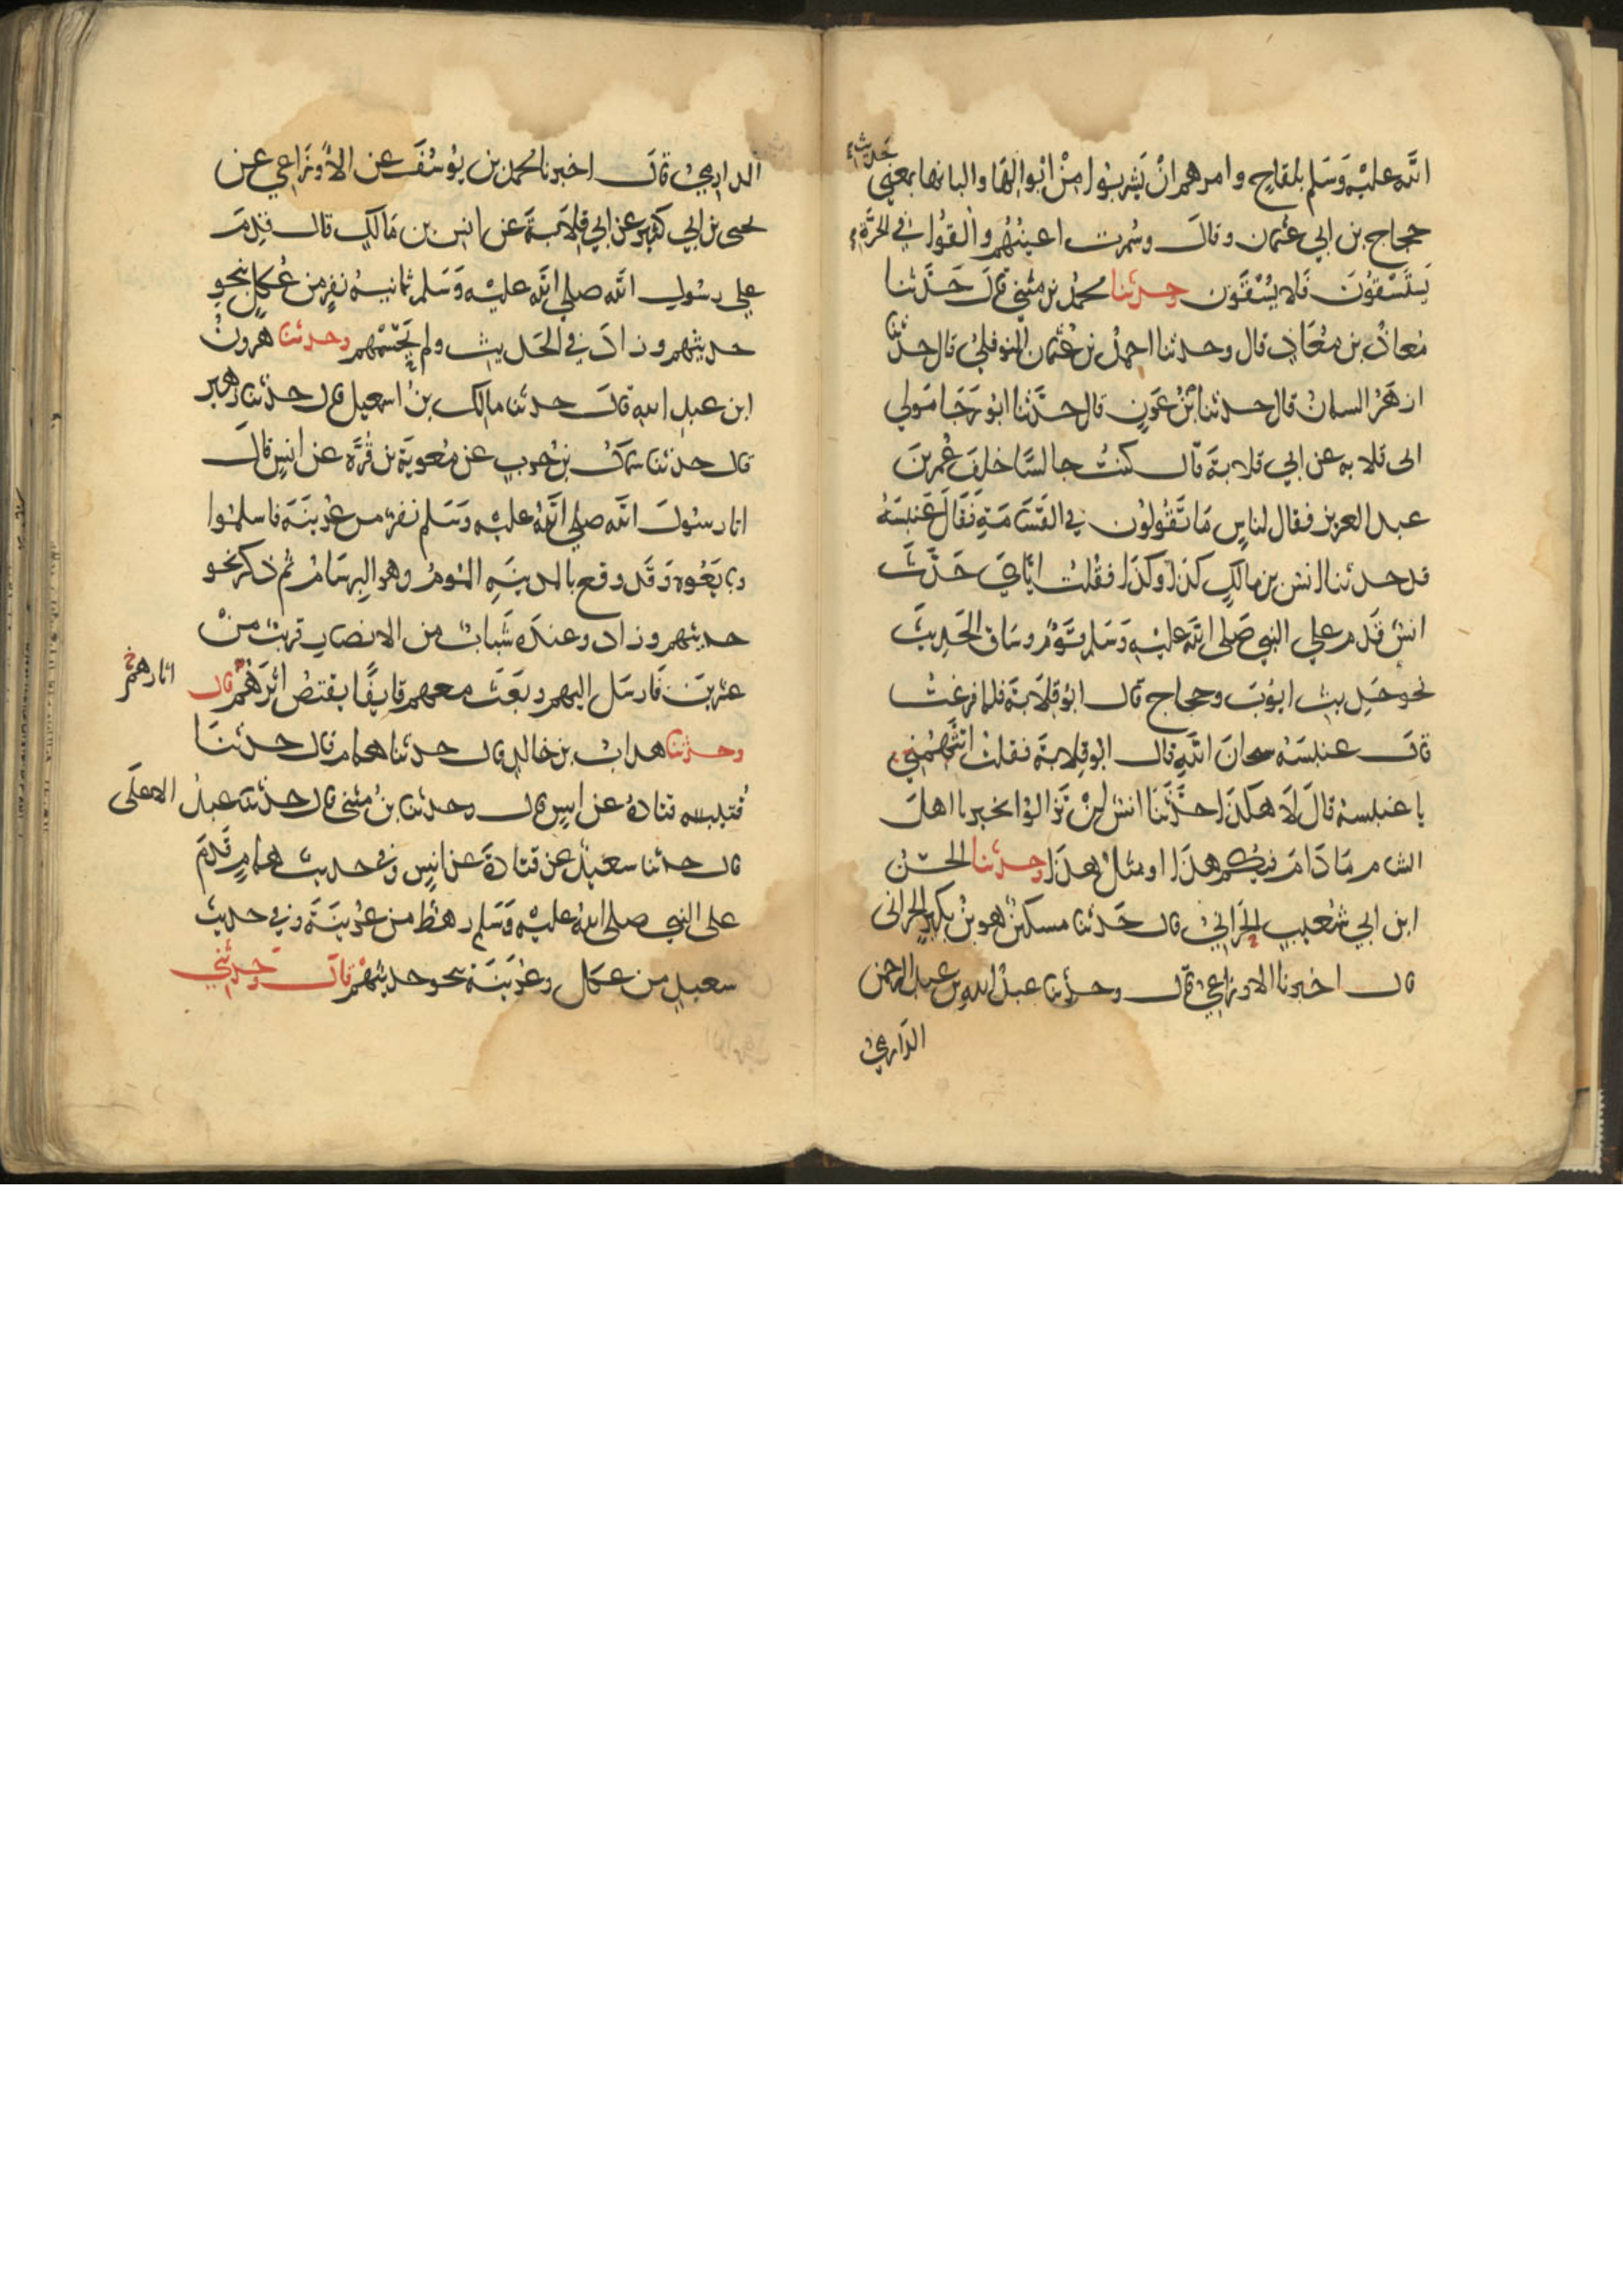 الله عليْه وَسَلم بلقاحٍ وامرهم انْ يَشربُوا مِنْ ابْوالِهَا والبانها بمعني
حجاج بن ابي عثمن وقالَ وسُمرت اعينُهُم والْقوُا في الحَرَّة
يَستَسْقوُنَ فَلا يُسْقَون وحدثنا محمدُ بن مثني قال حَدَّثنا
مُعاذُ بن مُعَاذٍ قال وحدثنا احمدُ بن عُثمان النوفليُ قال حدثنا
ازهَرُ السمانُ قال حدثنا بْنُ عَونٍ قال حدَّثنا ابُو رَجَا مَولي
ابي قلابه عن ابي قلابةَ قال كنتُ جالسًا خلفَ عُمر بنَ
عبد العزيز فقال لناسٍ مَا تَقُولوُن في القَسَامَةِ فَقَالَ عَنبسَةُ
قد حدثنا انسُ بن مالكٍ كذا وكذَا فقلْت ايَّايَ حَدَّثَ
انسٌ قَدم علي النبي صَلى الله عليْهِ وَسَلم قَوْمٌ وسَاق الحَدِيثَ
نحو حَدِيث ايوُبَ وحجاج قال ابُو قِلَابةَ فلما فرغتُ
قالَ عنبسَةُ سبحانَ اللهِ قال ابُو قِلابةَ فقلتُ اتتَّهمُني
يا عنبسةُ قالَ لَا هكذا حدَّثَنَا انسٌ لنْ تَزالوا بخيرٍ يا اهلَ
الشام مَا دَامَ فيكم هذَا او مثلُ هذَا وحدثنا الحسَنُ
ابن ابي شعيبٍ الحَرانيُ قال حَدثنا مسكينٌ هو بنُ بكيرٍ الحرانى
قال اخبرنا الاوزاعيُ قال وحدثنا عبدُ اللهِ بن عبد الرحمن
الدَارميُ
الدارميُ قالَ اخبرنا محمد بن يوُسُفَ عن الأوزَاعي عن
يحيى بن ابي كثيرٍ عن ابي قِلَابةَ عن انس بن مَالكٍ قال قدِمَ
علي رسُول الله صلي الله عليْه وَسَلم ثمانيةُ نفرٍ من عُكلٍ بنحوِ
حديثهم وزادَ في الحَديث ولم يَحْسِمْهم وحدثنا هرونُ
ابن عبدِ اللهِ قالَ حدثنا مالك بنُ اسمعيل قال حدثنا زهير
قال حدثنا سماكُ بن حربٍ عن معوية بن قُرَّه عن انسٍ قالَ
اتا رسُولَ الله صلي اللهُ عليْه وَسَلم نفرٌ من عُرينَةَ فاسلمُوا
وبايَعُوه وَقَد وقع بالمدينَةِ المُومُ وهو البِرسَامُ ثم ذكر نحو
حديثهم وزاد وعندَه شَبابٌ من الانصارِ قريبٌ منْ
عشرينَ فَارسَل اليهم وبَعَثَ معهم قايفًا يقتصُ اثَرَهُم قال
اثارهم
وحدثنا هدابُ بن خالدٍ قال حدثنا همام قال حدثنَا
قتادةُ عن انسٍ قال وحدثنا بنُ مثنى قال حدثنا عبدُ الاعلَى
قال حدثنا سعيدٌ عن قتادةَ عن انسٍ وفي حديث همامٍ قَدِمَ
على النبي صلى اللهُ عليْه وَسَلم رهطٌ من عُرينَةَ وفي حديث
سعيدٍ من عكل وعُرَينَةَ نحو حديثهمْ قالَ وَحدثني